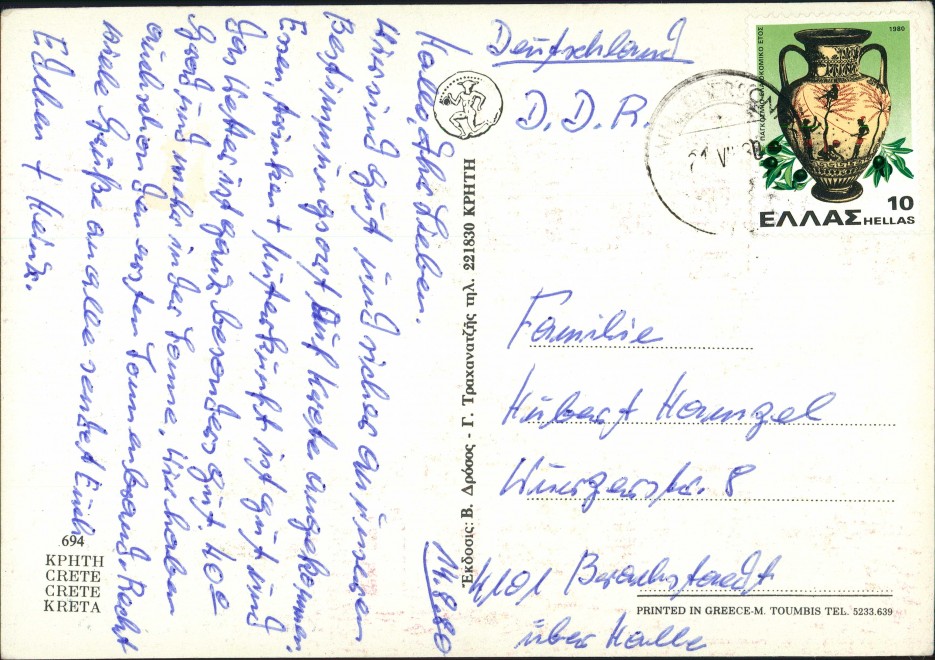 Hallo, Ihr Lieben.
Wir sind gut und sicher an unseren
Bestimmungsort auf Kreta angekommen.
Essen, trinken + Unterkunft ist gut und
das Wetter ist ganz besonders gut. 40°
Grad und mehr in der Sonne. Wir haben
auch schon den ersten Sonnenbrand. Recht
viele Grüße an alle sendet Euch
Egbert + Heinz.
14.8.80
694
ΚΡΗΤΗ
CRETE
CRETE
KRETA
Ἔκδοσις: Β. Δρόσος - Γ. Τραχανατζῆς τηλ. 221830 ΚΡΗΤΗ
Deutschland
D.D.R.
1980
ΕΛΛΑΣ HELLAS
10
Familie
Hubert
Wurzerstr. 8
4101 Beachstaedt
über Halle
PRINTED IN GREECE-M. TOUMBIS TEL. 5233.639